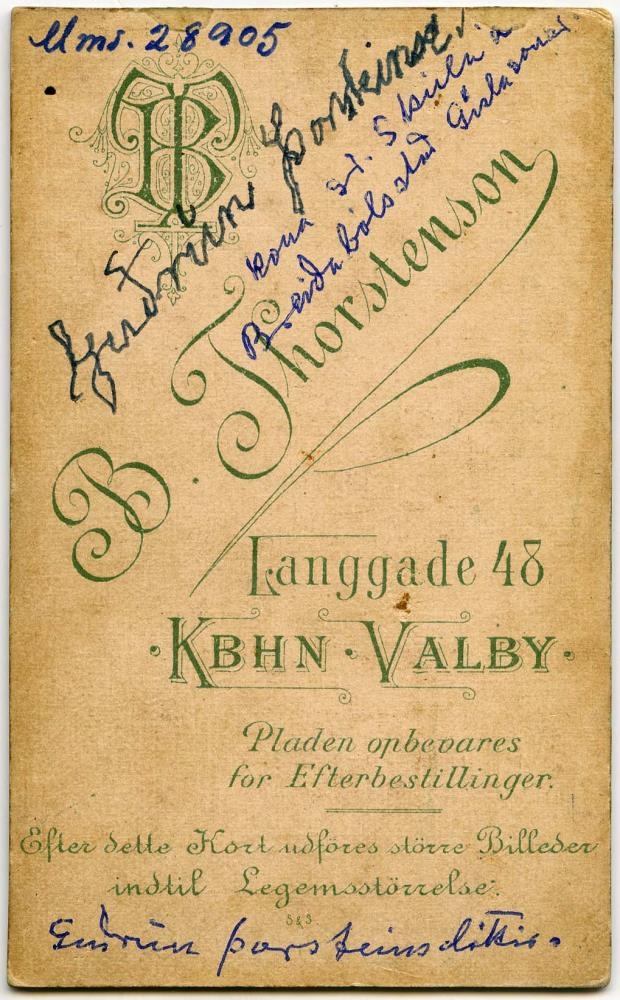 Mms. 28905
BT
Guðrún Þorsteinsd.
kona sr. Skúla
Breiðabólsstað Gíslasonar
B. Thorstenson
Langgade 48
KBHN · VALBY
Pladen opbevares
for Efterbestillinger.
Efter dette Kort udföres större Billeder
indtil Legemsstörrelse.
S&S
Guðrún þorsteinsdóttir.